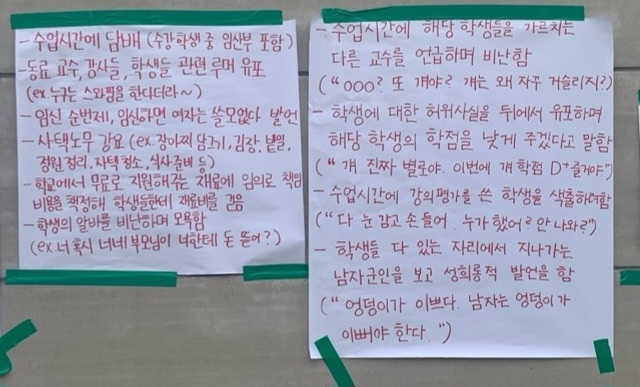 - 수업시간에 담배 (수강학생 중 임산부 포함)
- 동료 교수, 강사들, 학생들 관련 루머 유포
(ex. 누구는 스와핑을 한다더라~)
- 임신 순번제, 임신하면 여자는 쓸모없다 발언
- 사택노무 강요 (ex. 장아찌 담그기, 김장, 밭일,
정원정리, 자택청소, 식사준비 등)
- 학교에서 무료로 지원해주는 재료에 임의로 책임
비용을 책정해 학생들한테 재료비를 걷음
- 학생의 알바를 비난하며 모욕함
(ex. 너 혹시 너네 부모님이 너한테 돈 뜯어?)
- 수업시간에 해당 학생들을 가르치는
다른 교수를 언급하며 비난함
("OOO? 또 걔야? 걔는 왜 자꾸 거슬리지?")
- 학생에 대한 허위사실을 뒤에서 유포하며
해당 학생의 학점을 낮게 주겠다고 말함
("걔 진짜 별로야. 이번에 걔 학점 D+줄거야")
- 수업시간에 강의평가를 쓴 학생을 색출하려함
("다 눈 감고 손들어. 누가 했어? 안 나와?")
- 학생들 다 있는 자리에서 지나가는
남자군인을 보고 성희롱적 발언을 함
("엉덩이가 이쁘다. 남자는 엉덩이가
이뻐야 한다.")